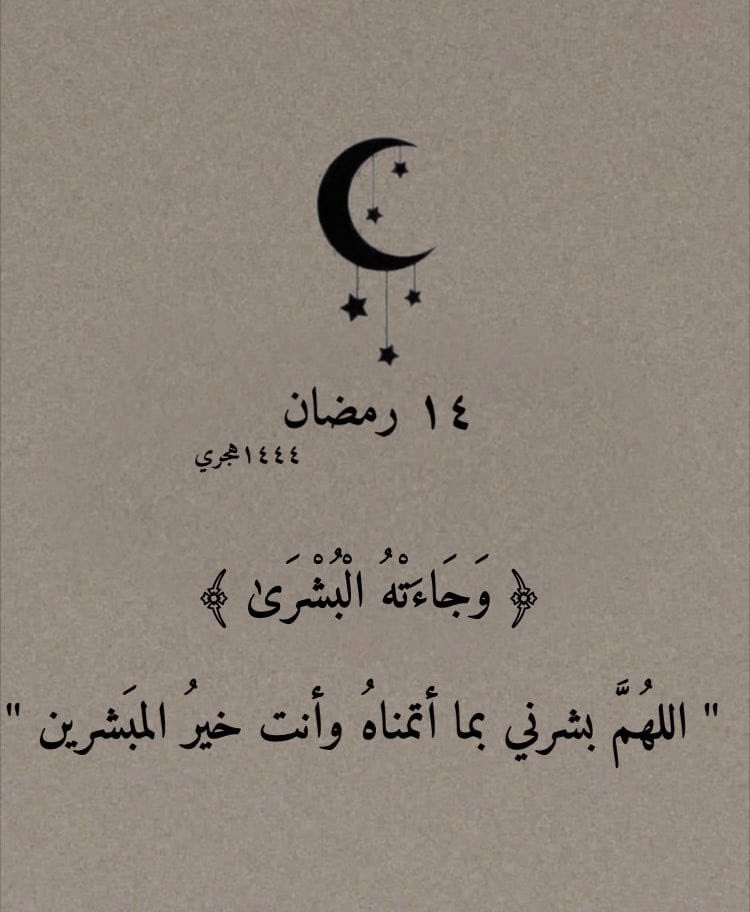 ١٤ رمضان
١٤٤٤هجري
﴿ وَجَاءَتْهُ الْبُشْرَىٰ ﴾
" اللهُمَّ بشرني بما أتمناهُ وأنت خيرُ المبَشرين "